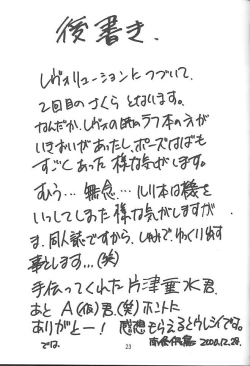 後書き.
レヴォリューションにつづいて、
2回目のさくら となります。
なんだか、レヴォの時のラフ本の方が
いきおいがあったし、ポーズはばも
すごくあった 様な気がします。
むう…無念…ルリ本は機を
いっしてしまった様な気がしますが
ま、同人誌ですから、しゅみでゆっくり出す
事とします…(笑)
手伝ってくれた片津亜水君、
あと A(仮)君、(笑)ホントに
ありがとー! 感想もらえるとウレシイです。
では、
2000.12.29.
23